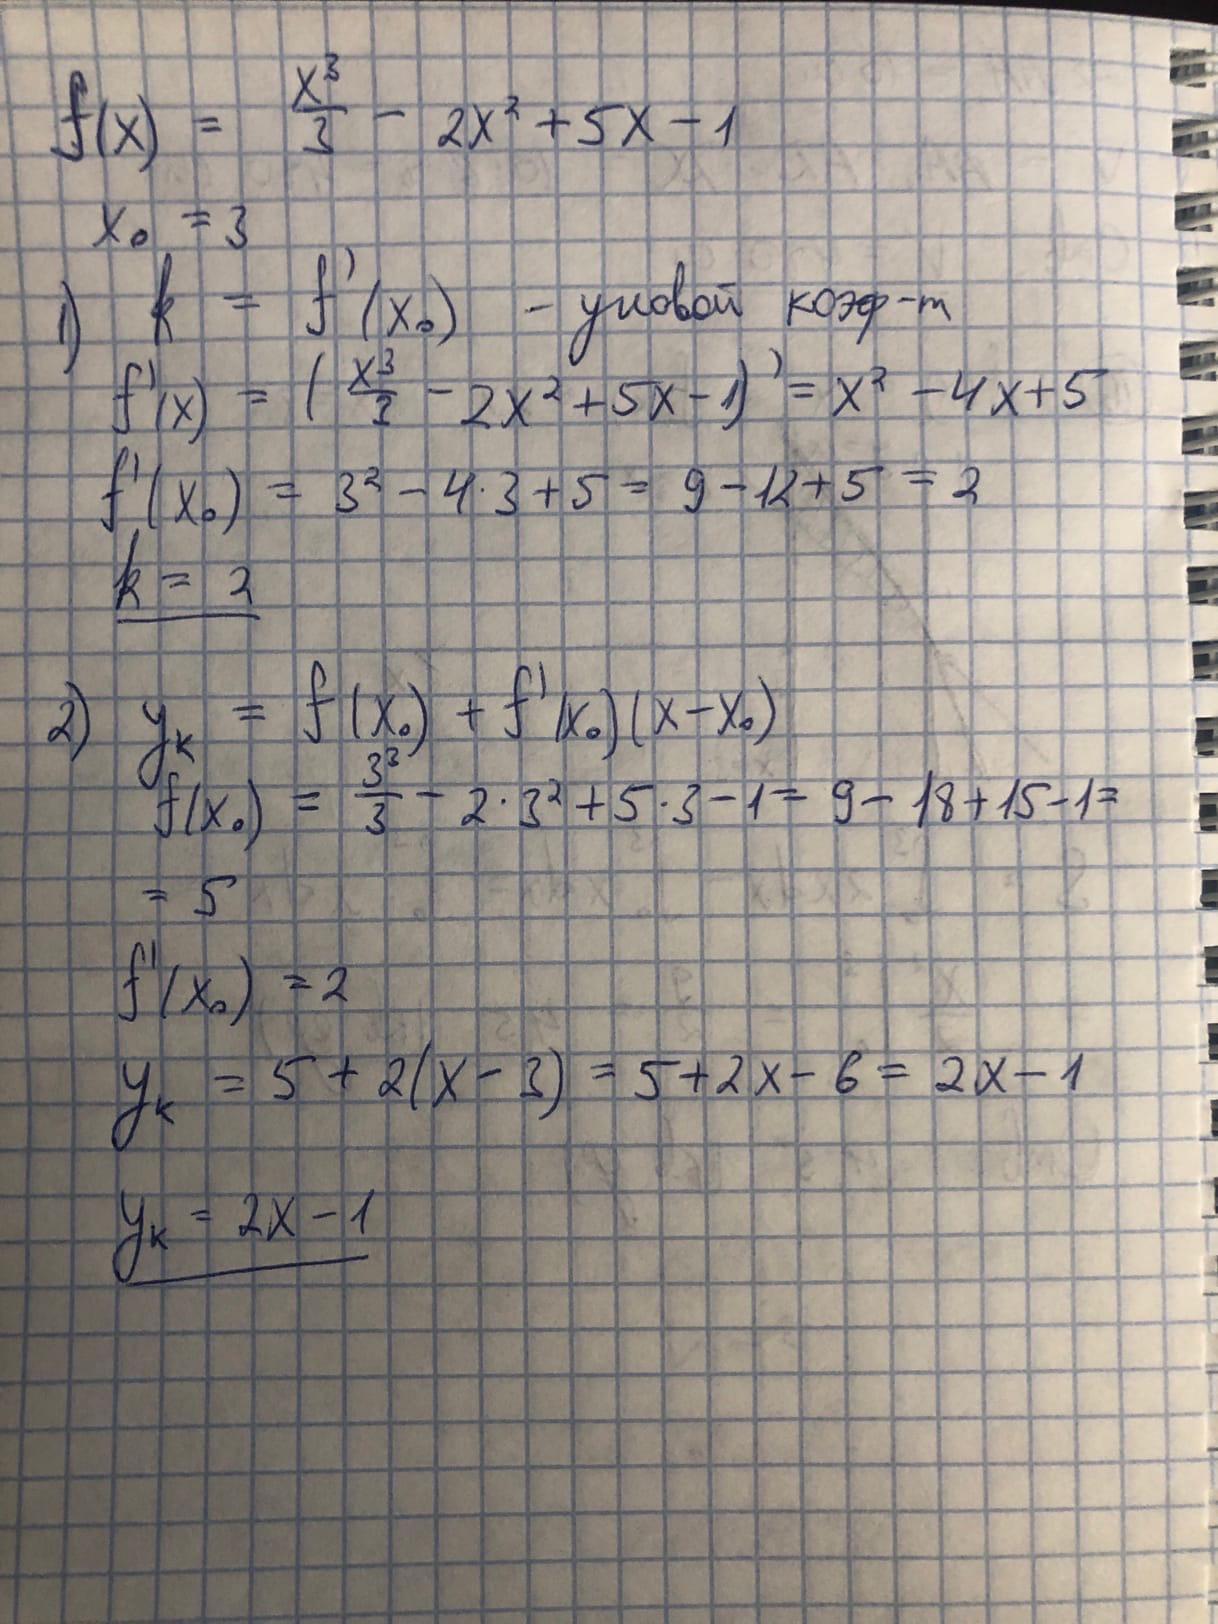 f(x) = x³/3 - 2x² + 5x - 1
x₀ = 3
1) k = f'(x₀) - угловой коэф-т
f'(x) = (x³/3 - 2x² + 5x - 1)' = x² - 4x + 5
f'(x₀) = 3² - 4·3 + 5 = 9 - 12 + 5 = 2
k = 2
2) yₖ = f(x₀) + f'(x₀)(x - x₀)
f(x₀) = 3³/3 - 2·3² + 5·3 - 1 = 9 - 18 + 15 - 1 =
= 5
f'(x₀) = 2
yₖ = 5 + 2(x - 3) = 5 + 2x - 6 = 2x - 1
yₖ = 2x - 1